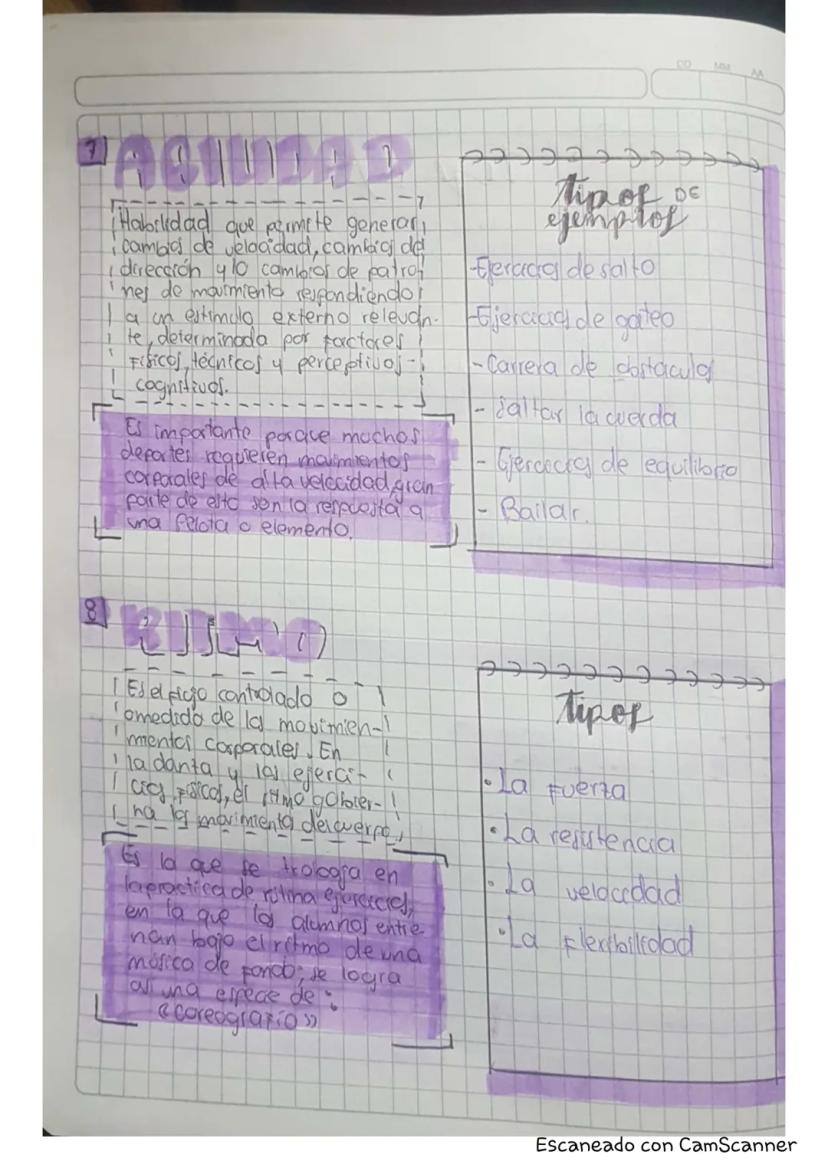 DD MM AA
7 AGILIDAD
Habilidad que permite generar
cambios de velocidad, cambios de
dirección y/o cambios de patro
nes de movimiento respondiendo
a un estimulo externo relevan-
te, determinada por factores
Fisicos, técnicos y perceptivos-
cognitivos.
Es importante porque muchos
deportes requieren movimientos
corporales de alta velocidad, gran
parte de esto son la respuesta a
una pelota o elemento.
Tipos DE
ejemplos
-Ejercicios de salto
-Ejercicios de gateo
-Carrera de obstaculos
- Saltar la cuerda
- Ejercicios de equilibrio
- Bailar.
8 RITMO
Es el flujo controlado o
omedido de los movimien-
mentos corporales. En
la danta y los ejerci-
cios fisicos, el ritmo gobier-
na los movimiento del cuerpo,
Es lo que se
en
la practica de rutina ejercicios,
en la que los alumnos entre
nan bajo el ritmo de una
música de fondo; se logra
asi una especie de:
«coreografio»
Tipos
• La fuerza
• La resistencia
• La velocidad
• La flexibilidad
Escaneado con CamScanner